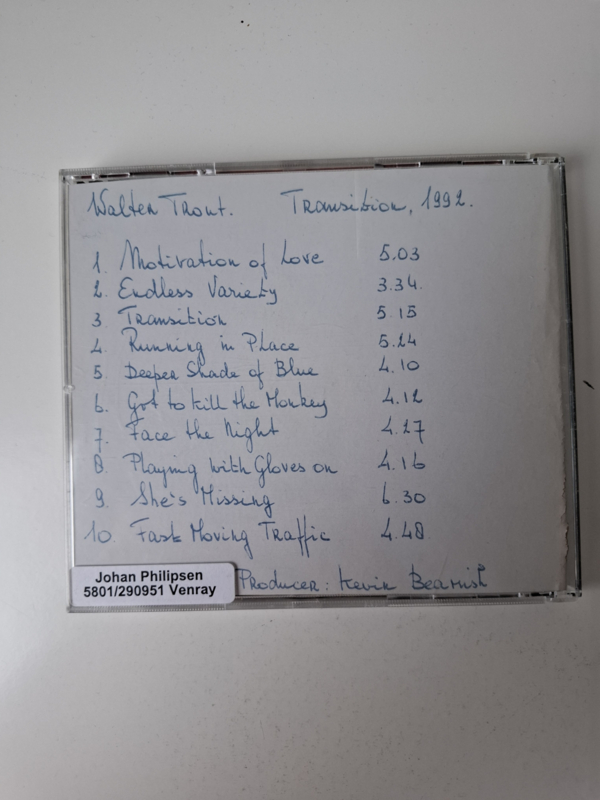 Walter Trout. Transition, 1992.
1. Motivation of Love 5.03
2. Endless Variety 3.34.
3 Transition 5.15
4. Running in Place 5.24
5. Deeper Shade of Blue 4.10
6. Got to kill the Monkey 4.12
7. Face the Night 4.27
8. Playing with Gloves on 4.16
9. She's Missing 6.30
10. Fast Moving Traffic 4.48.
Producer: Kevin Beamish
Johan Philipsen
5801/290951 Venray